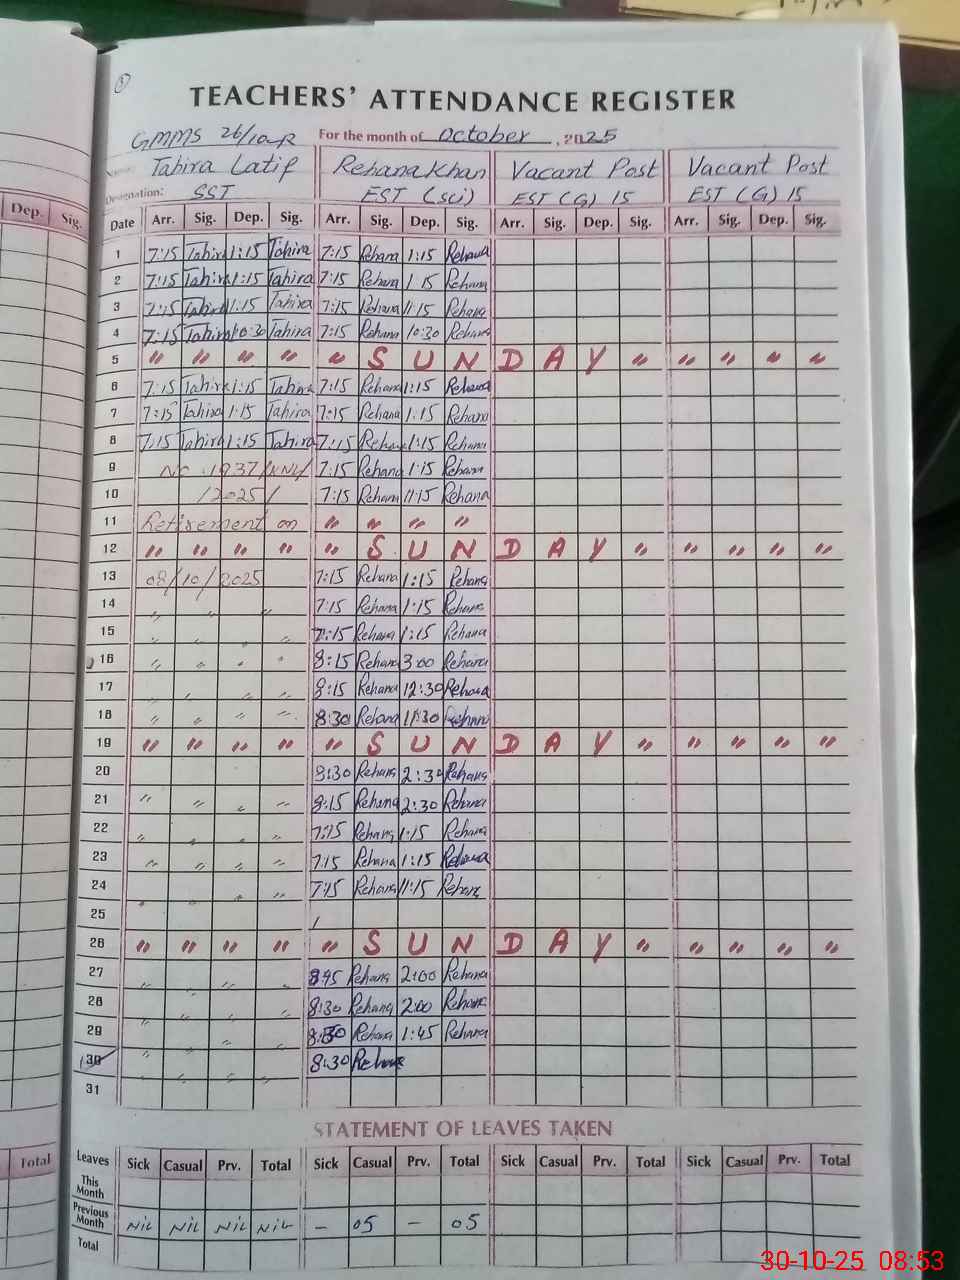 TEACHERS' ATTENDANCE REGISTER
GMMS 26/10-R For the month of October, 2025
Name: Tahira Latif Rehana Khan Vacant Post Vacant Post
Designation: SST EST (sci) EST (G) 15 EST (G) 15
Dep. Sig. Date Arr. Sig. Dep. Sig. Arr. Sig. Dep. Sig. Arr. Sig. Dep. Sig. Arr. Sig. Dep. Sig.
1 7:15 Tahira 1:15 Tahira 7:15 Rehana 1:15 Rehana
2 7:15 Tahira 1:15 Tahira 7:15 Rehana 1:15 Rehana
3 7:15 Tahira 1:15 Tahira 7:15 Rehana 1:15 Rehana
4 7:15 Tahira 10:30 Tahira 7:15 Rehana 10:30 Rehana
5 " " " " " S U N D A Y " " " " "
6 7:15 Tahira 1:15 Tahira 7:15 Rehana 1:15 Rehana
7 7:15 Tahira 1:15 Tahira 7:15 Rehana 1:15 Rehana
8 7:15 Tahira 1:15 Tahira 7:15 Rehana 1:15 Rehana
9 No 1937/ 7:15 Rehana 1:15 Rehana
10 /2025/ 7:15 Rehana 1:15 Rehana
11 Retirement on " " " "
12 " " " " " S U N D A Y " " " " "
13 08/10/2025 7:15 Rehana 1:15 Rehana
14 " " " 7:15 Rehana 1:15 Rehana
15 " " " " 7:15 Rehana 1:15 Rehana
16 " " " " 8:15 Rehana 3:00 Rehana
17 " " " " 8:15 Rehana 12:30 Rehana
18 " " " " 8:30 Rehana 11:30 Rehana
19 " " " " " S U N D A Y " " " " "
20 8:30 Rehana 2:30 Rehana
21 " " " " 8:15 Rehana 2:30 Rehana
22 " " " " 7:15 Rehana 1:15 Rehana
23 " " " " 7:15 Rehana 1:15 Rehana
24 " " " " 7:15 Rehana 11:15 Rehana
25
26 " " " " " S U N D A Y " " " " "
27 " " " " 8:45 Rehana 2:00 Rehana
28 " " " " 8:30 Rehana 2:00 Rehana
29 " " " " 8:30 Rehana 1:45 Rehana
30 " " " " 8:30 Rehana
31
STATEMENT OF LEAVES TAKEN
Total Leaves Sick Casual Prv. Total Sick Casual Prv. Total Sick Casual Prv. Total Sick Casual Prv. Total
This Month
Previous Month Nil Nil Nil Nil - 05 - 05
Total
30-10-25 08:53